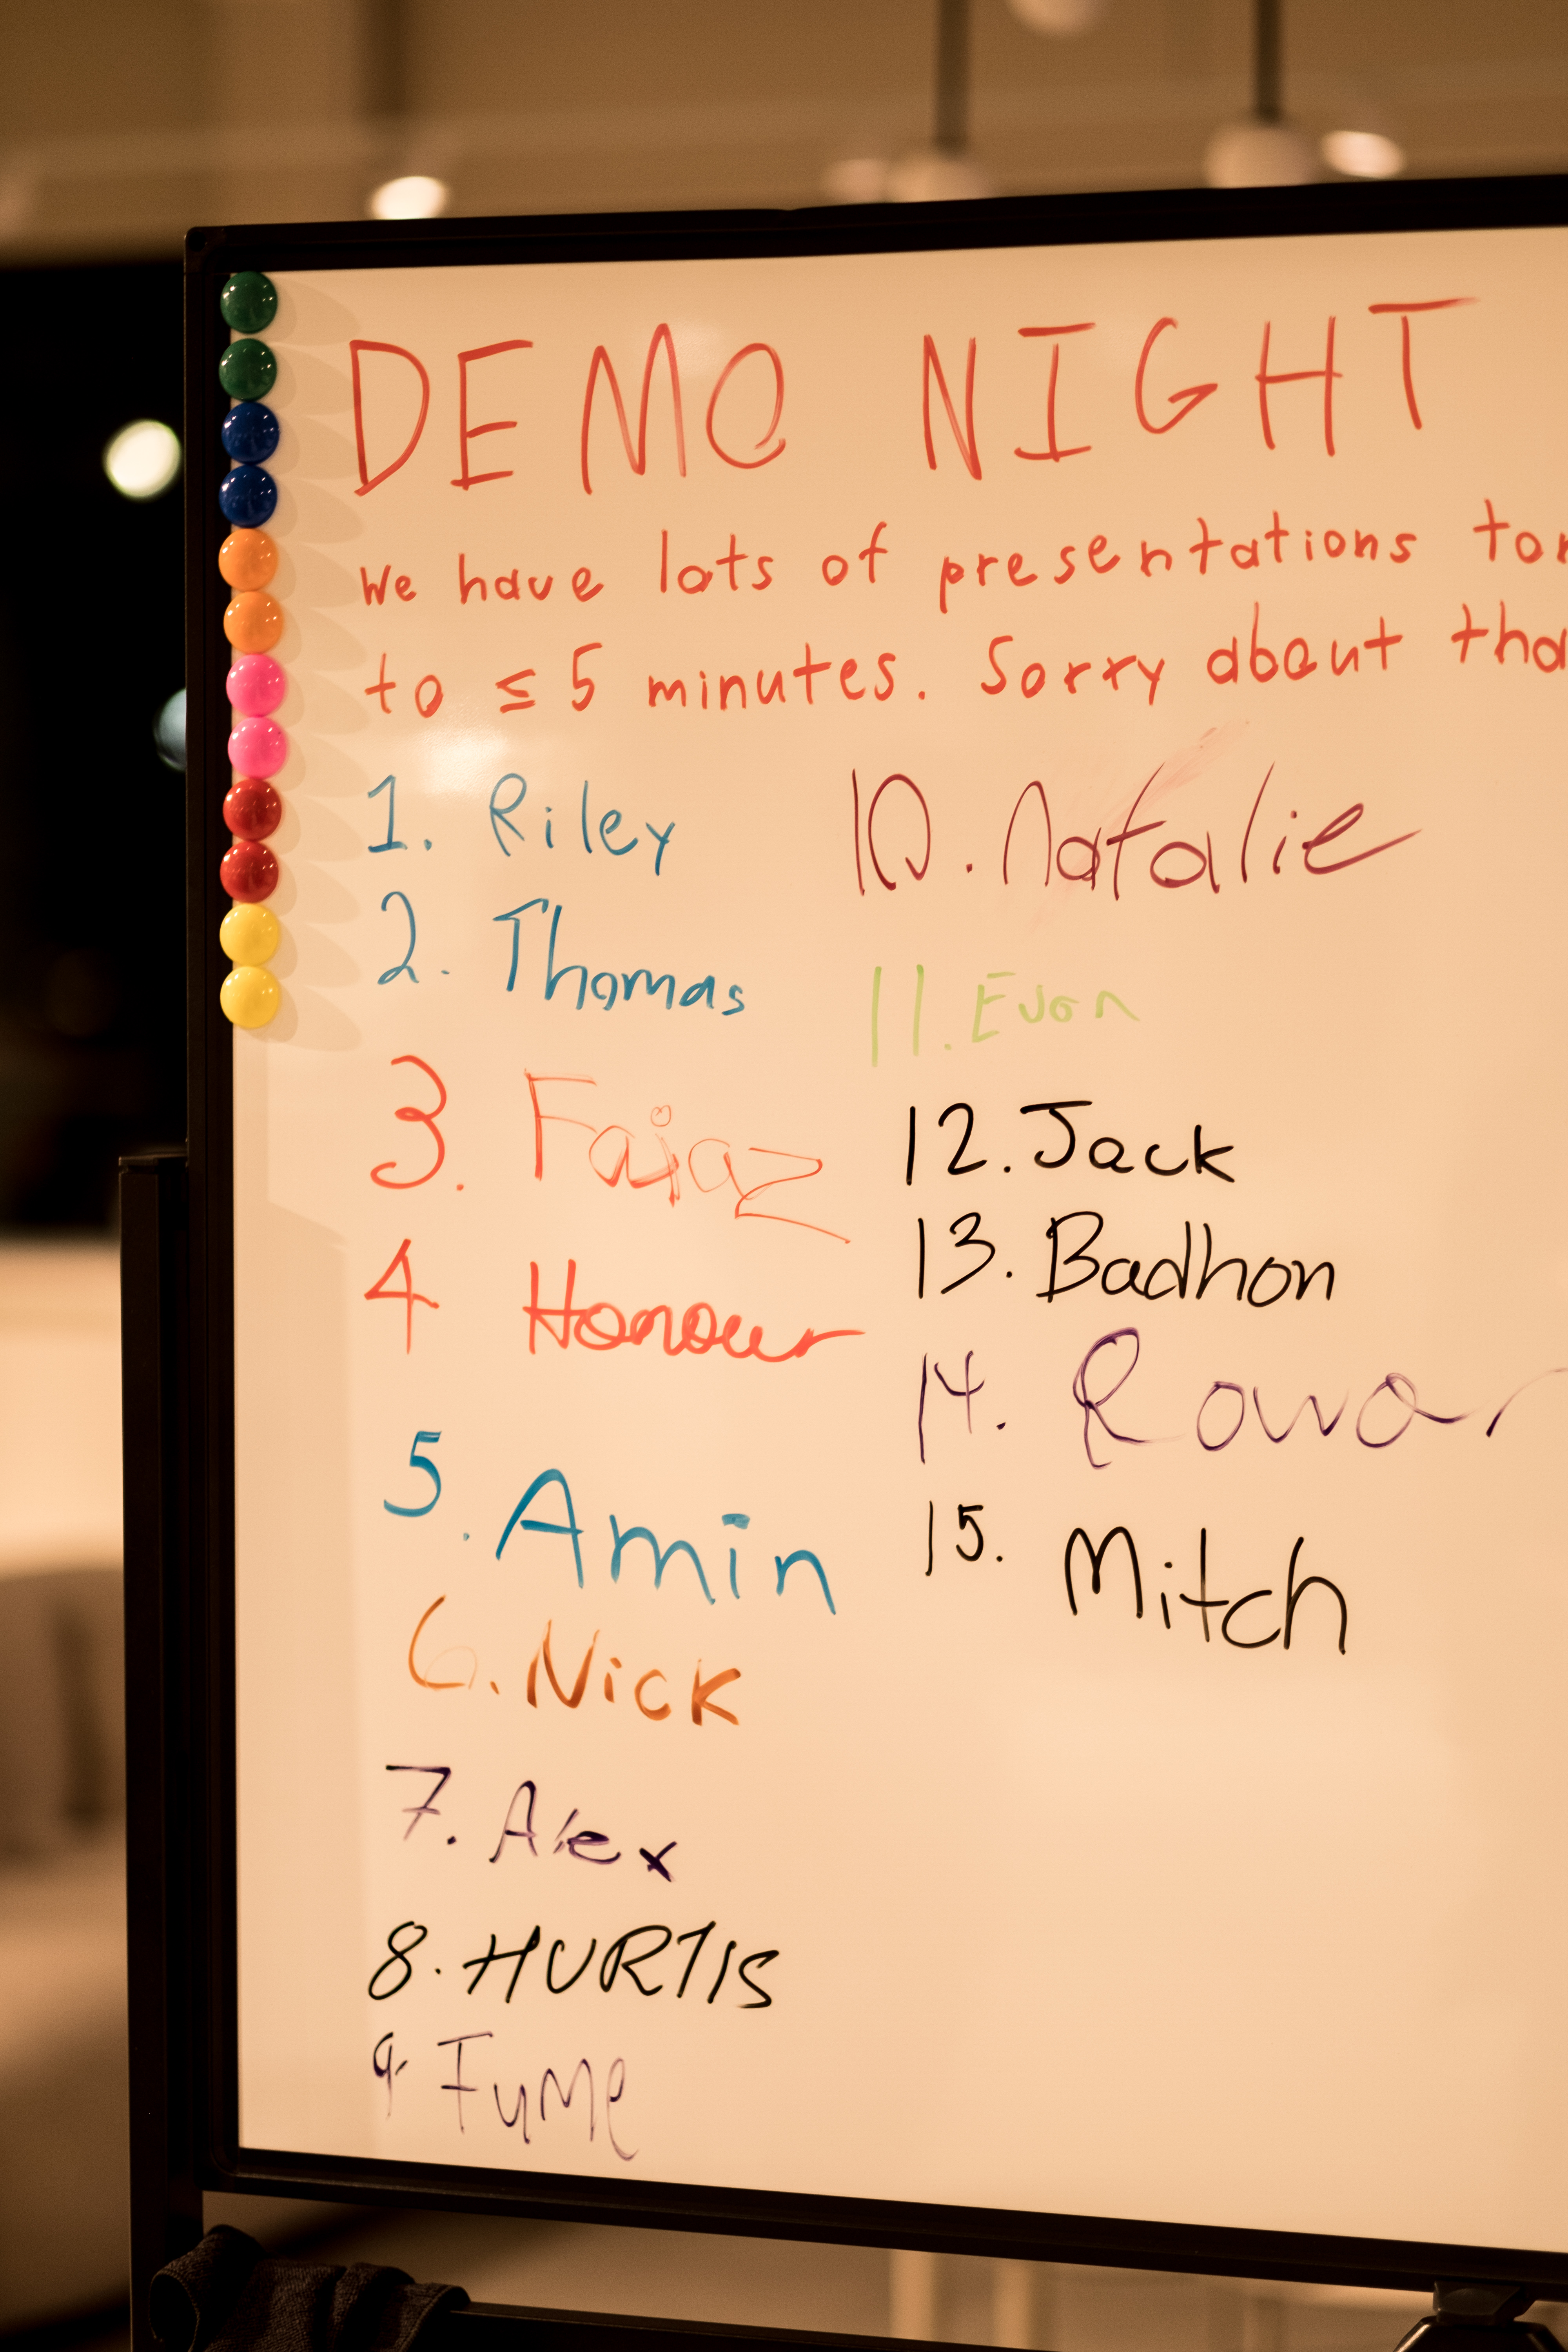 DEMO NIGHT
We have lots of presentations
to ≤ 5 minutes. Sorry about
1. Riley
2. Thomas
3. Faiaz
4 Honour
5. Amin
6. Nick
7. Alex
8. HURTIS
9. Fume
10. Natalie
11. Evan
12. Jack
13. Badhon
14. Rowan
15. Mitch